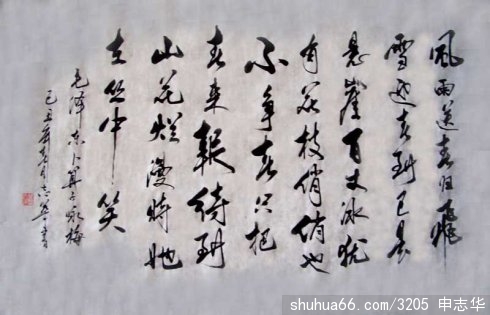 風雨送春归飛
雪迎春到已是
悬崖百丈冰犹
有花枝俏俏也
不争春只把
春来報待到
山花烂漫时她
在丛中笑
毛泽东卜算子咏梅
己丑年春月志华书
shuhua66.com/3205 申志华